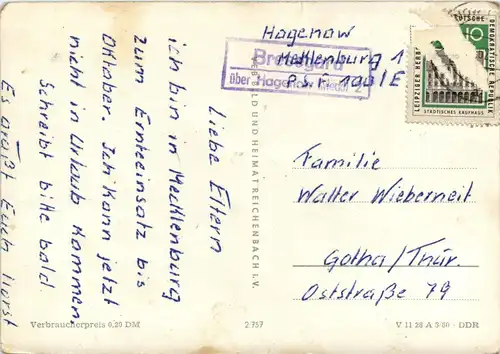 Hagenow
Mecklenburg 1
P.S.F. 1981/E
über Hagenow
DEUTSCHE
DEMOKRATISCHE REPUBLIK
10
LEIPZIGER HERBST
STÄDTISCHES KAUFHAUS
Liebe Eltern
ich bin in Mecklenburg
zum Ernteeinsatz bis
Oktober. Ich kann jetzt
nicht in Urlaub kommen.
Schreibt bitte bald
Es grüßt Euch Horst
BILD UND HEIMAT REICHENBACH I. V.
Familie
Walter Wieberneit
Gotha/Thür.
Oststraße 79
Verbraucherpreis 0,20 DM
2 757
V 11 28 A 3/60 - DDR